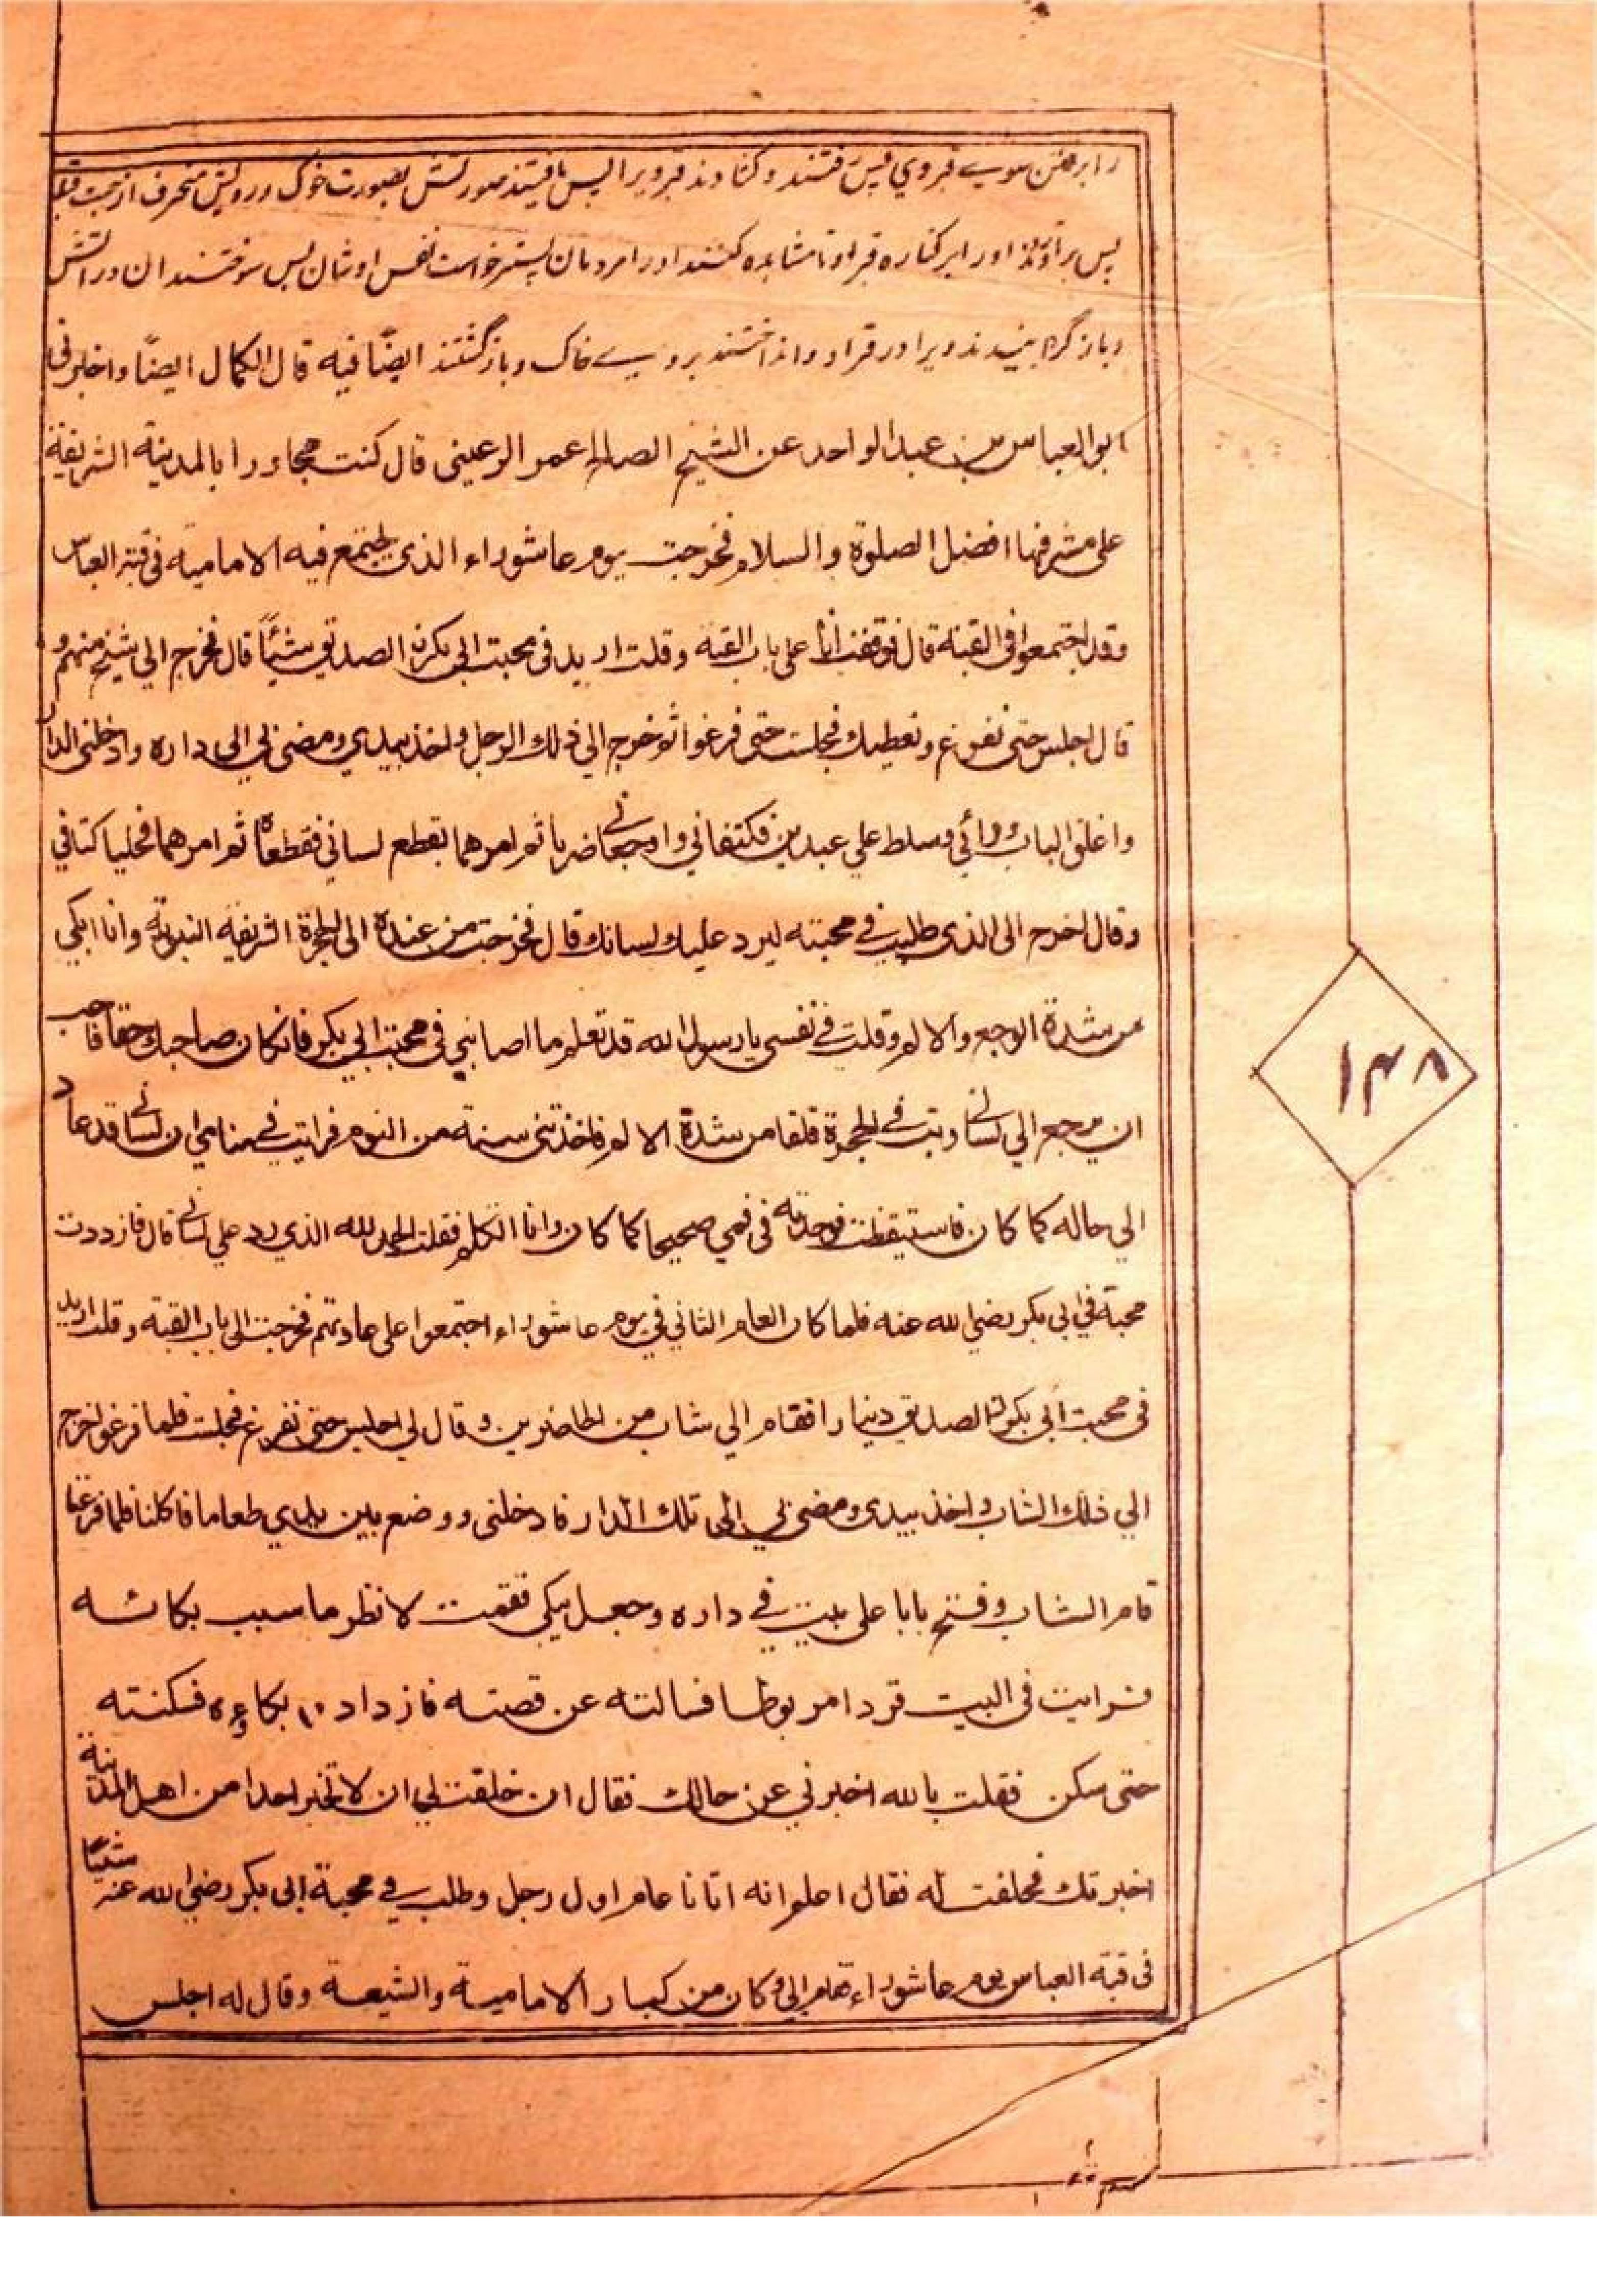 را برهمن سوے قبر وي پس رفتند و کشادند قبر ویرا پس یافتند صورتش بصورت خوک و رویش منحرف از جهت قبله
پس برآوردند اورا بر کناره قبر او تا مشاهده کنند اورا مردمان پستر خواست نفس اوشان پس سوختند ان در اتش
و باز گردانیدند ویرا در قبر او و انداختند بروے خاک و بازگشتند ایضًا فیه قال الکمال ایضًا واخبرنی
ابو العباس بن عبد الواحد عن الشیخ الصالح عمر الرعینی قال کنت مجاورا بالمدینة الشریفة
علی مشرفها افضل الصلوة والسلام فخرجت یوم عاشوراء الذی یجتمع فیه الامامیة فی قبة العباس
وقد اجتمعوا فی القبة قال فوقفت أنا علی باب القبة وقلت ارید فی محبت ابی بکرن الصدیق شیًٔا قال فخرج الی شیخ منهم و
قال اجلس حتی نفرغ ونعطیك فجلست حتی فرغوا ثم خرج الي ذلك الرجل واخذ بیدي ومضی بی الی داره وادخلنی الدار
واغلق الباب ورائي وسلط علي عبدین فکتفاني واوجعانے ضربا ثم امرهما بقطع لساني فقطعاه ثم امرهما فحلیا کتافي
وقال اخرج الی الذی طلبت فے محبته لیرد علیك لسانك قال فخرجت من عنده الی الحجرة الشریفة النبویة وانا ابکي
من شدة الوجع والالم وقلت فے نفسی یا رسول الله قد تعلم ما اصابني فی محبت ابی بکر فان کان صاحبك حقا فاحب
ان یرجع الي لسانے وبت فے الحجرة قلقا من شدة الالم فاخذتنی سنة من النوم فرایت فے منامي ان لسانے قد عاد
الي حاله کما کان فاستیقظت فوجدته فی فمي صحیحا کما کان وانا اتکلم فقلت الحمد لله الذي رد علي لسانے قال فازددت
محبة في ابی بکر رضي الله عنه فلما کان العام الثاني في یوم عاشوراء اجتمعوا علی عادتهم فخرجت الی باب القبة وقلت ارید
فی محبت ابی بکر ن الصدیق دینارا فقام الي شاب من الحاضرین و قال لي اجلس حتی نفرغ فجلست فلما فرغوا خرج
الي ذلك الشاب واخذ بیدی ومضی بي الی تلك الدار فادخلنی ووضع بین یدي طعاما فاکلنا فلما فرغنا
قام الشاب وفتح بابا علی بیت فے داره وجعل یبکي فقمت لانظر ما سبب بکائه
فرایت فی البیت قردا مربوطا فسالته عن قصته فازداد بکاءه فسکنته
حتی سکن فقلت بالله اخبرني عن حالك فقال ان حلفت لي ان لا تخبر احدا من اهل المدینة
اخبرتك فحلفت له فقال اعلم انه اتانا عام اول رجل وطلب فے محبة ابی بکر رضي الله عنه شیًٔا
فی قبة العباس یوم عاشوراء فقام الي و کان من کبار الامامیة والشیعة وقال له اجلس
۱۴۸